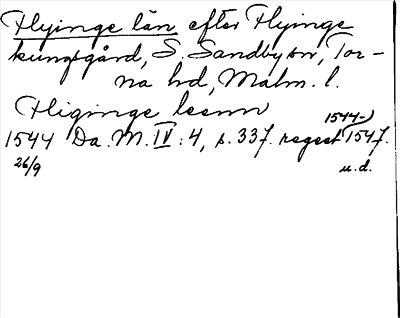 Flyinge län efter Flyinge
kungsgård, S. Sandby sn, Tor-
na hd, Malm. l.
Fliginge leenn
1544 Da. M. IV : 4, s. 337. regest 1544-1547.
26/9 u.d.